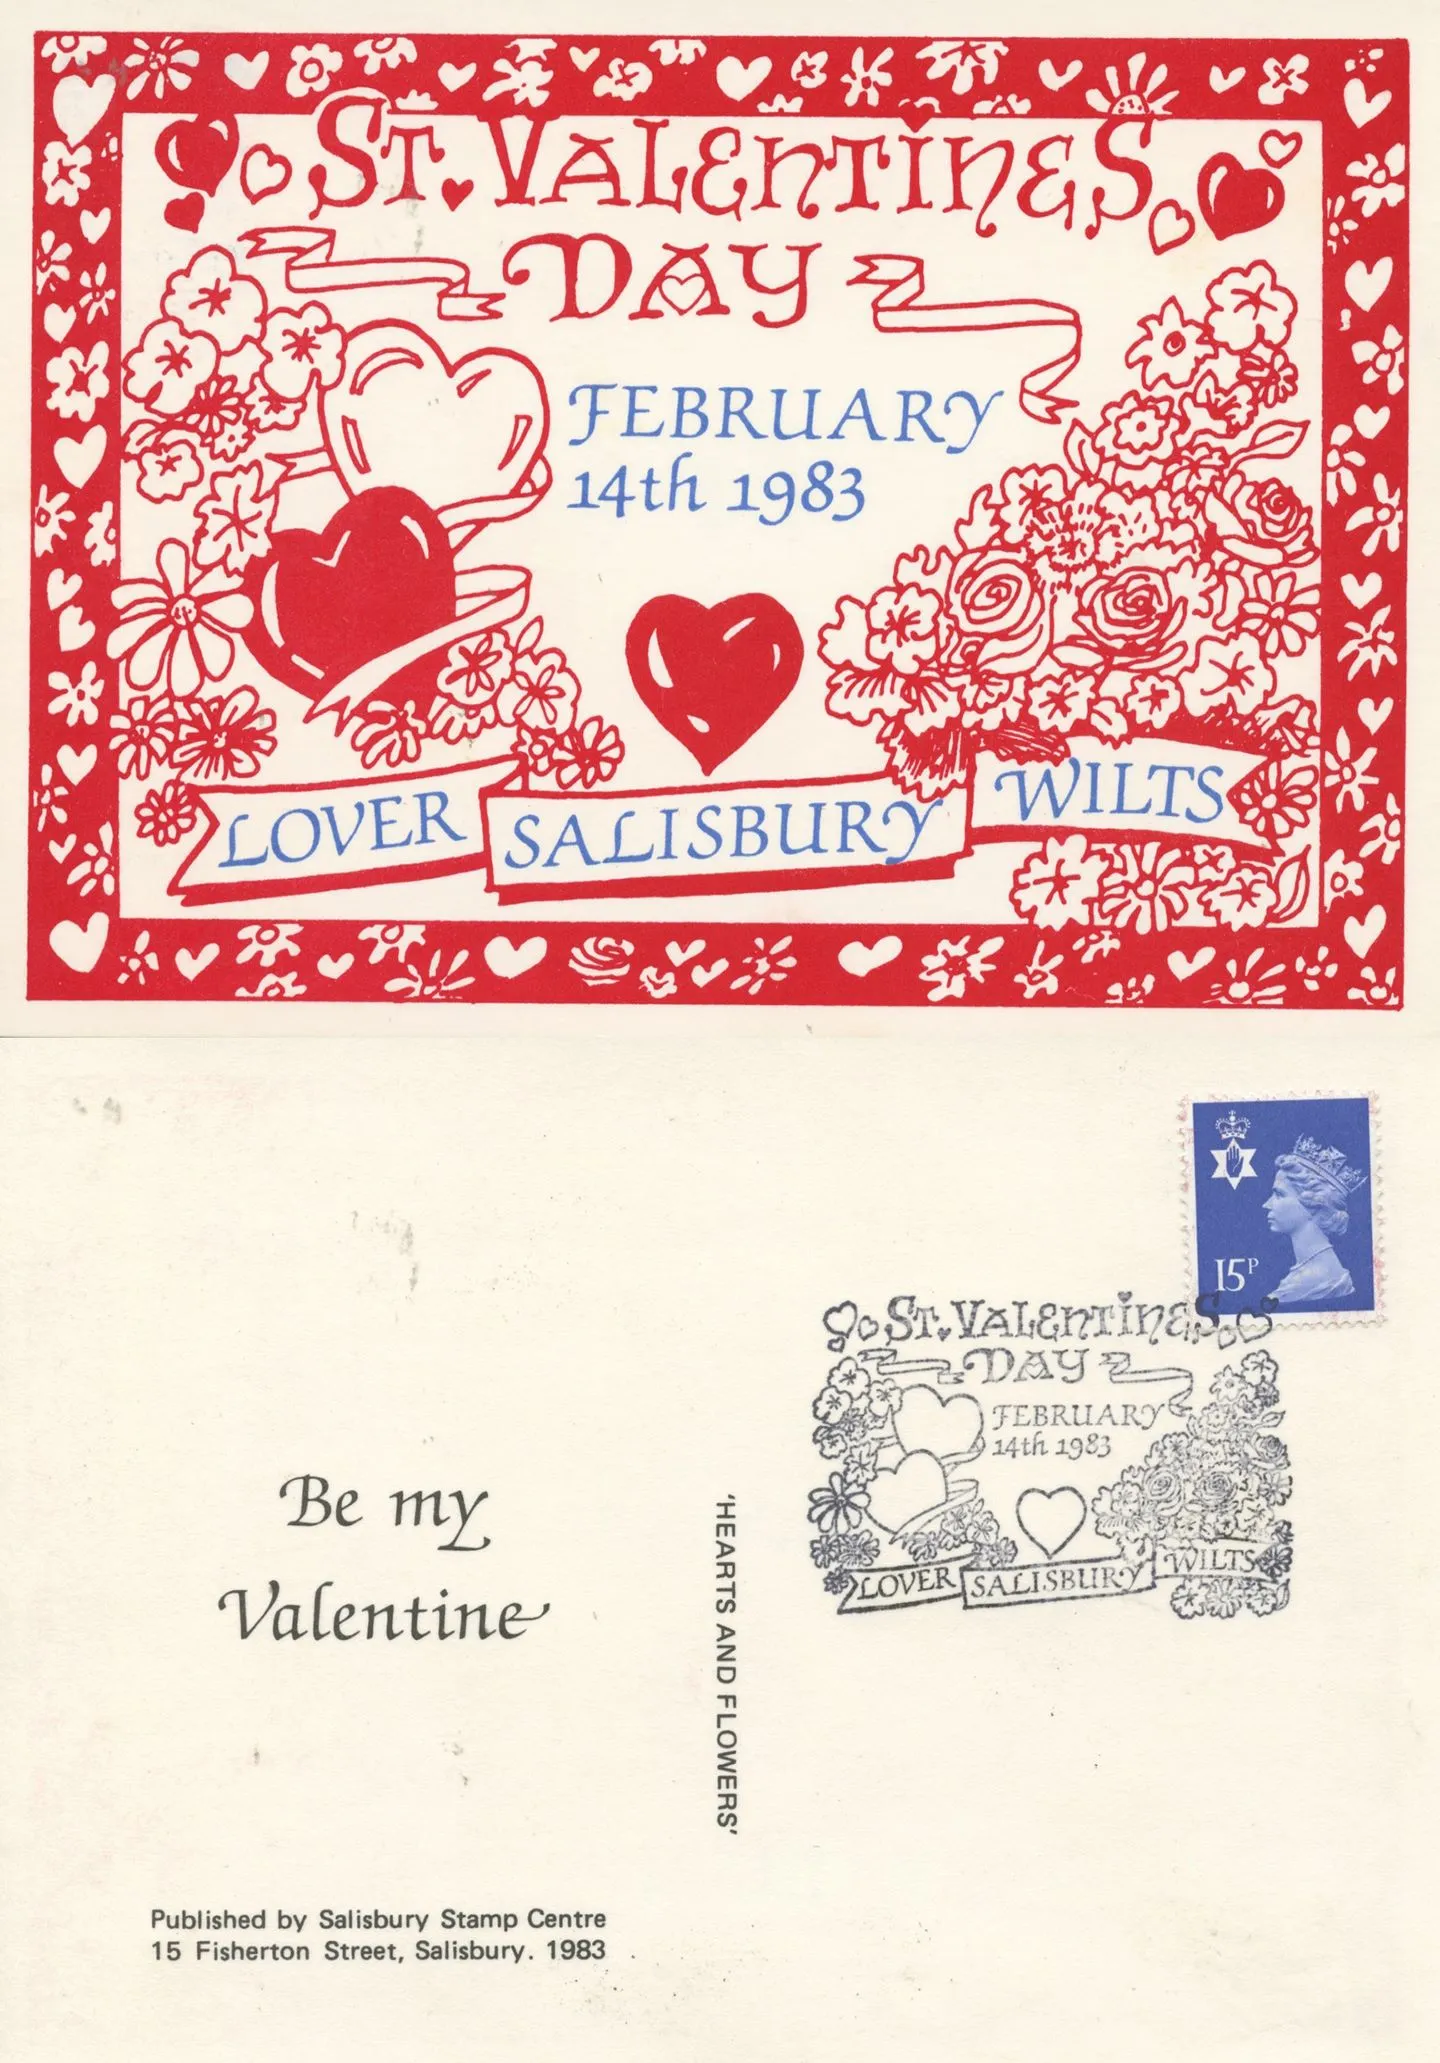 St. Valentines
Day
February
14th 1983
Lover Salisbury Wilts
15P
St. Valentines
Day
February
14th 1983
Lover Salisbury Wilts
Be my
Valentine
'HEARTS AND FLOWERS'
Published by Salisbury Stamp Centre
15 Fisherton Street, Salisbury. 1983